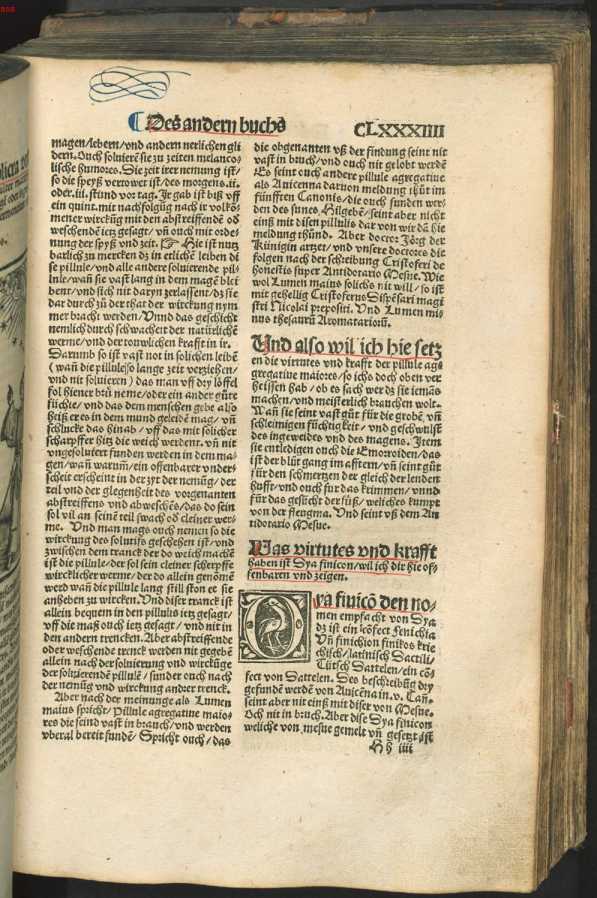 Des andern buchs
CLXXXIIII
magen/lebern/vnd andern nerlichen gli
dern. Ouch soluierē sie zu zeiten melanco-
lische humores. Die zeit irer nemung ist/
so die speyß verrower ist/des morgens.ii.
oder.iii.stund vor tag. Ir gab ist biß vff
ein quint. mit nachfolgūg nach ir volkō-
mener wirckūg mit den abstreiffende od
weschende ietz gesagt/vn̄ ouch mit orde-
nung der spyß vnd zeit. Hie ist nutz
barlich zu mercken dz in etliche leiben di
se pillule/vnd alle andere soluierende pil-
lule/wan̄ sie vast lang in dem mage blei
bent/vnd sich nit daryn zerlassent/dz sie
dar durch zu der that der wirckung nym
mer bracht werden/Vnnd das geschicht
nemlich durch schwacheit der natürliche
werme/vnd der touwlichen krafft in ir.
Darumb so ist vast not in solichen leibē
(wan̄ die pillule so lange zeit verziehen/
vnd nit soluieren) das man vff dry löffel
fol hiener brü neme/oder ein ander gūte
füchte/vnd das dem menschen gebe also
heiß er es in dem mund geleidē mag/vn̄
schlucke das hinab/vff das mit solicher
scharpffer hitz die weich werdent. vn̄ nit
vngesoluiert funden werden in dem ma-
gen/wan̄ warum/ein offenbarer vnder-
scheit erscheint in der zyt der nemūg/der
teil vnd der glegenheit des vorgenanten
abstreiffens vnd abweschēs/das do sein
sol vil an seinē teil swach od cleiner wer-
me. Vnd man mags ouch nemen so die
wirckung des solutifs geschehen ist/vnd
zwischen dem tranck der do weich machē
ist die pillule/der sol sein cleiner scherpffe
wircklicher werme/der do allein genomē
werd wan̄ die pillule lang still ston ee sie
anheben zu wircken. Vnd diser tranck ist
allein bequem in den pillulis ietz gesagt/
vff die maß ouch ietz gesagt/vnd nit in
den andern trencken. Aber abstreiffende
oder weschende trenck werden nit gegebē
allein nach der soluierung vnd wirckūge
der soluierende pillulē/sunder ouch nach
der nemūg vnd wirckung andrer trenck.
Aber nach der meinunge als Lumen
maius spricht/Pillule agregatiue maio-
res die seind vast in bruch/vnd werden
vberal bereit fundē/Spricht ouch/das
die obgenanten vß der findung seint nit
vast in bruch/vnd ouch nit gelobt werdē
Es seint ouch andere pillule agregatiue
als Auicenna daruon meldung thūt im
fünfften Canonis/die ouch sunden wer-
den des sunes Hilgebē/seint aber nicht
einß mit disen pillulis dar von wir da hie
meldung thūnd. Aber doctor Jörg der
Künigin artzet/vnd vnsere doctores die
folgen nach der schreibung Cristoferi de
honestis super Antidotario Mesue. Wie
wol Lumen maius solichs nit will/so ist
mit gehellig Cristoferus Dispēsari magi
stri Nicolai prepositi. Vnd Lumen mi-
nus thesaurū Aromatariorū.
Vnd also wil ich hie setz
en die virtutes vnd krafft der pillule ag-
gregatiue maiores/so ichs doch oben ver
heissen hab/ob es sach wer dz sie iemās
machen/vnd meisterlich brauchen wolt.
Wan̄ sie seint vast gūt für die grobe vn̄
schleimigen füchtigkeit/vnd geschwulst
des ingeweides vnd des magens. Item
sie entledigen ouch die Emoroiden/das
ist der blūt gang im afftern/vn̄ seint gūt
für den schmertzen der gleich der lenden
hufft/vnd ouch für das krimmen/vnnd
für das gesücht der füß/weliches kumpt
von der flengma. Vnd seint vß dem An
tidotario Mesue.
Was virtutes vnd krafft
haben ist Dya finicon/wil ich dir hie of-
fenbaren vnd zeigen.
Dya finicō den no-
men empfacht von Dya
dz ist ein cōfect fenichia
Vn̄ finichion finikos krie
chisch/latinisch Dactili/
Tütsch Dattelen/ein cō-
fect von Dattelen. Des beschreibūg dry
gefundē werdē von Auicēna in.v. Can̄.
seint aber nit einß mit diser von Mesue.
Och nit in bruch. Aber dise Dya finicon
weliche von mesue gemelt vn̄ gesetzt ist
Hh iiii